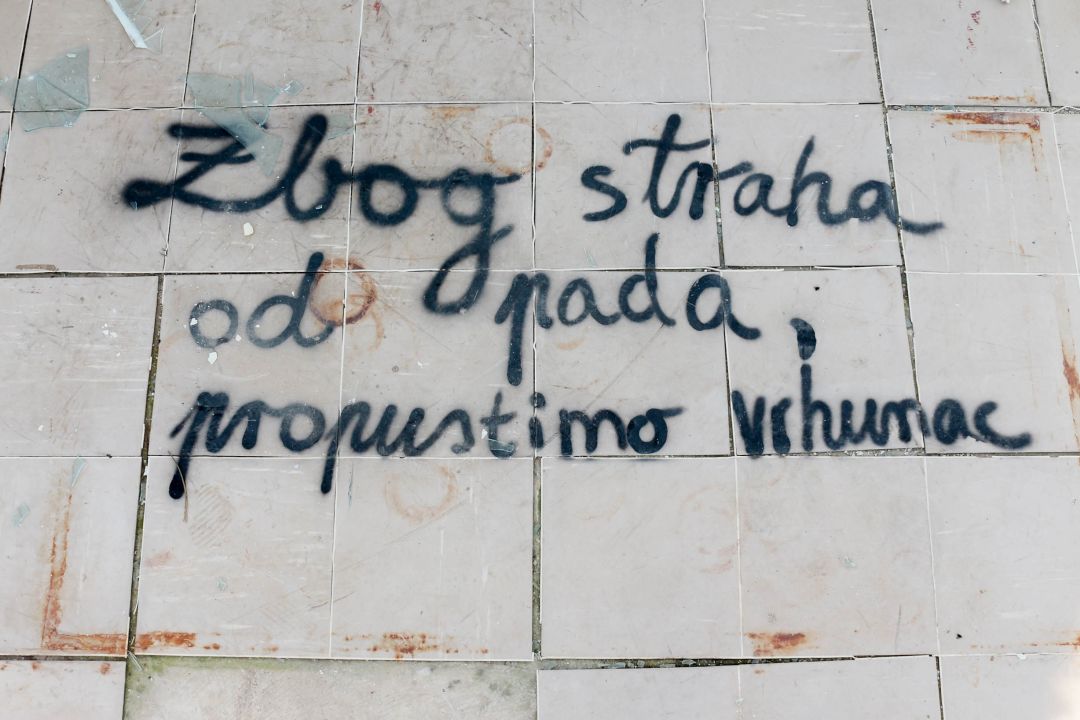 Zbog straha
od pada,
propustimo vrhunac